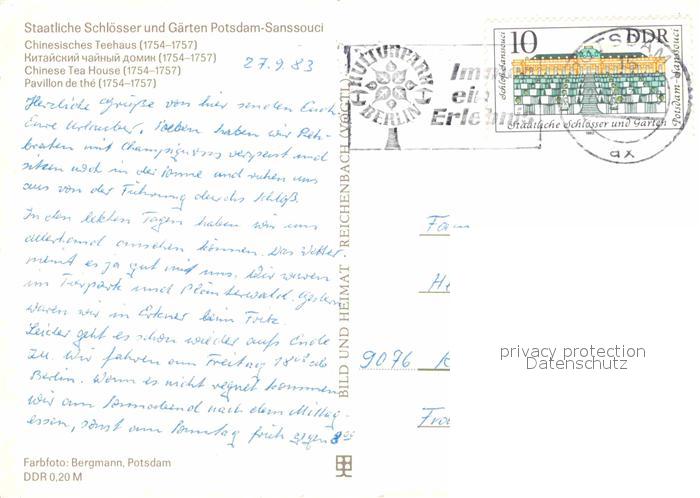 Staatliche Schlösser und Gärten Potsdam-Sanssouci
Chinesisches Teehaus (1754–1757)
Китайский чайный домик (1754–1757)
Chinese Tea House (1754–1757)
Pavillon de thé (1754–1757)
27.9.83
Herzliche Grüße von hier senden Euch
Eure Urlauber. Soeben haben wir Reh-
braten mit Champignons verspeist und
sitzen noch in der Sonne und ruhen uns
aus von der Führung durchs Schloß.
In den letzten Tagen haben wir uns
allerhand ansehen können. Das Wetter
meint es ja gut mit uns. Wir waren
im Tierpark und Plänterwald. Gestern
waren wir in Erkner beim Fritz.
Leider geht es schon wieder aufs Ende
zu. Wir fahren am Freitag 18 ab
Berlin. Wenn es nicht regnet kommen
wir am Sonnabend nach dem Mittag-
essen, sonst am Sonntag früh gegen 8
Farbfoto: Bergmann, Potsdam
DDR 0,20 M
BILD UND HEIMAT REICHENBACH (VOGTL)
KULTURPARK
BERLIN
Immer
ein
Erlebnis
10 DDR
Schloß Sanssouci
Potsdam-Sanssouci
Staatliche Schlösser und Gärten
ax
Fam
He
9076 K
Fra
privacy protection
Datenschutz